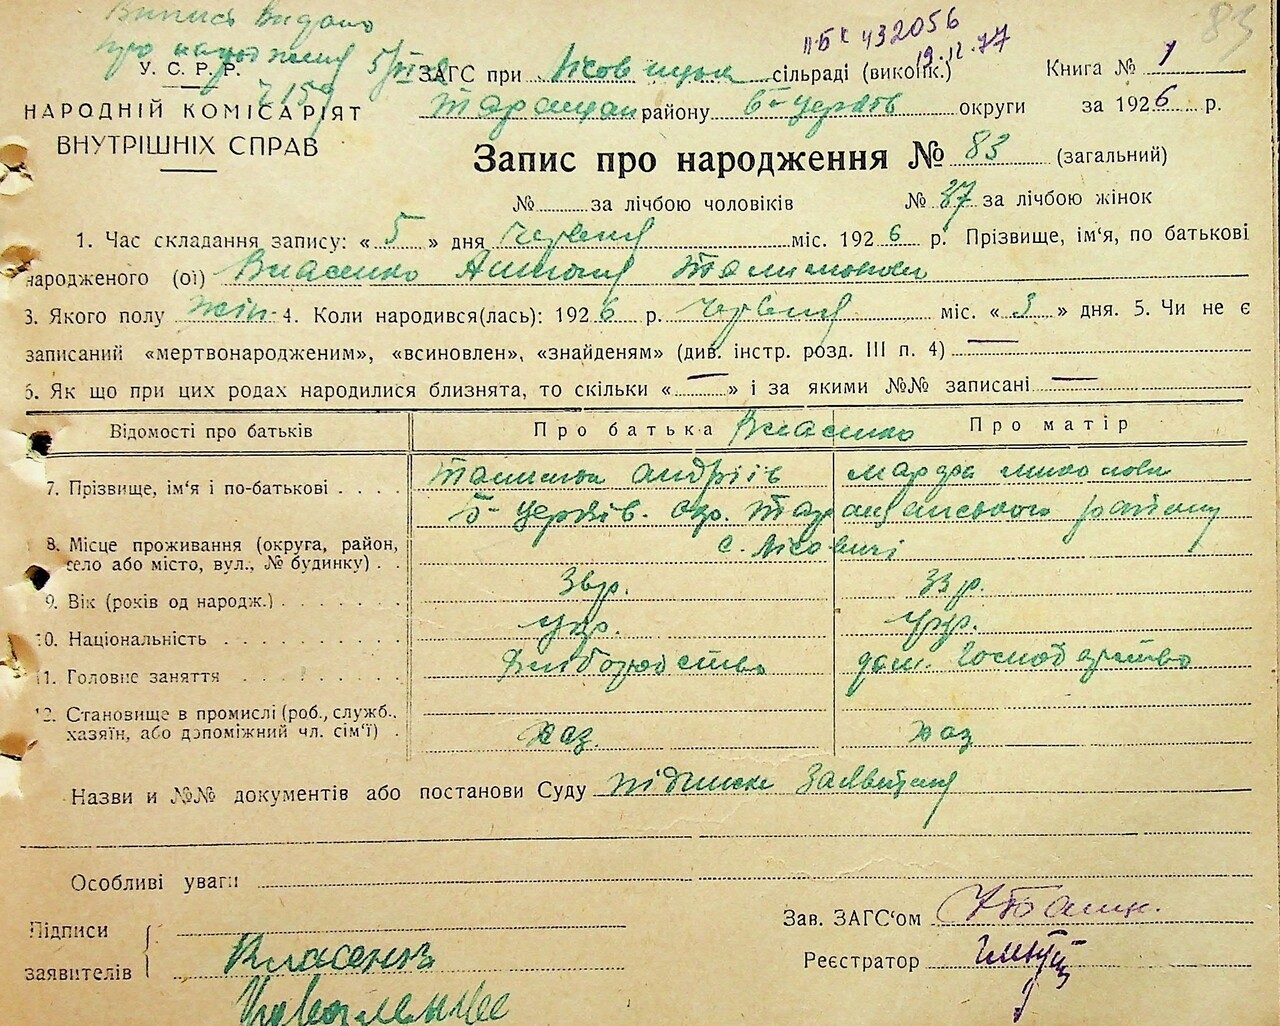 Випись видано
про народження 5/VI
83
ІІ-БК 432056
19.12.77
У. С. Р. Р.
НАРОДНІЙ КОМІСАРІЯТ
ВНУТРІШНІХ СПРАВ
ЗАГС при Лісовицьк сільраді (виконк.) Книга № 1
Таращан району Б-Церков округи за 1926 р.
Запис про народження № 83 (загальний)
№ за лічбою чоловіків № 37 за лічбою жінок
1. Час складання запису: « 5 » дня червня міс. 1926 р. Прізвище, ім'я, по батькові
народженого (ої) Власенко
3. Якого полу жін. 4. Коли народився(лась): 1926 р. червня міс. « 3 » дня. 5. Чи не є
записаний «мертвонародженим», «всиновлен», «знайденям» (див. інстр. розд. III п. 4) —
6. Як що при цих родах народилися близнята, то скільки « — » і за якими №№ записані —
Відомості про батьків Про батька Власенко Про матір
7. Прізвище, ім'я і по-батькові Андріїв
Б-Церків. окр. Таращанського району
8. Місце проживання (округа, район, с. Лісовичі
село або місто, вул., № будинку)
9. Вік (років од народж.) 33 р.
10. Національність укр. укр.
11. Головне заняття Хліборобство дом. господарство
12. Становище в промислі (роб., служб.,
хазяїн, або допоміжний чл. сім'ї) хаз. хаз
Назви и №№ документів або постанови Суду підписка заявителя
Особливі уваги
Підписи
заявителів Власенко
Зав. ЗАГС'ом
Реєстратор